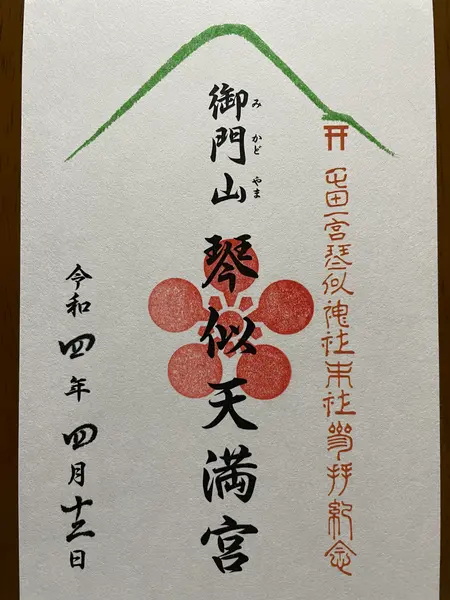 屯田一宮琴似神社末社参拝紀念
みかどやま
御門山 琴似天満宮
令和四年 四月十三日